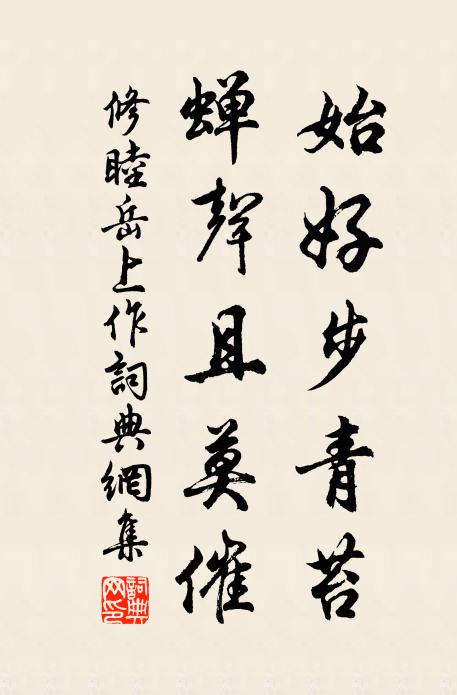 始好步青苔
蝉聲且莫催
修睦岳上作詞典網集
詞典网印